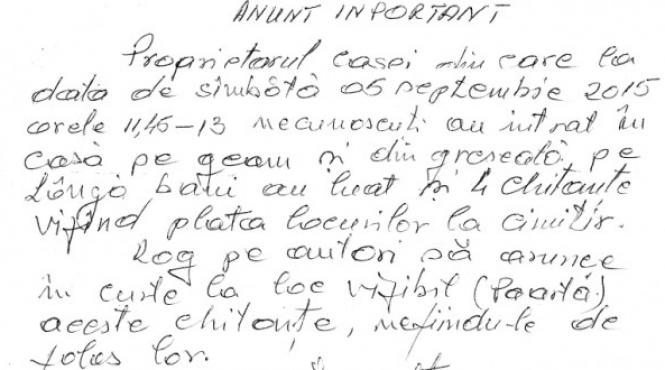 ANUNT INPORTANT
Proprietarul casei din care la
data de sîmbôtô 05 septembrie 2015
orele 11,45-13 necunoscuti au intrat în
casô pe geam și din greseală pe
lôngô bani au luat și 4 chitante
vizînd plata locurilor la cimitir.
Rog pe autori să arunce
în curte la loc vizibil (Poartă)
aceste chitanțe, nefiindu-le de
folos lor.